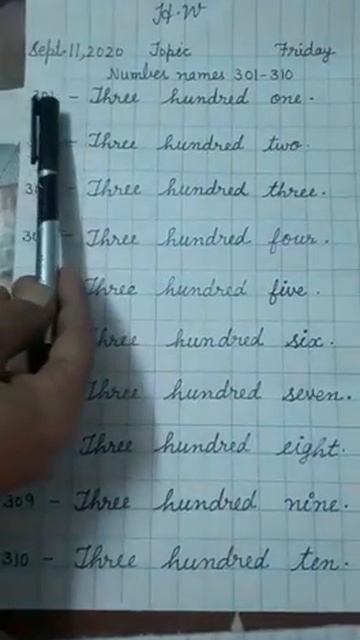 H.W
Sept.11,2020 Topic Friday
Number names 301-310
301 - Three hundred one.
- Three hundred two.
- Three hundred three.
- Three hundred four.
Three hundred five.
Three hundred six.
Three hundred seven.
Three hundred eight.
309 - Three hundred nine.
310 - Three hundred ten.